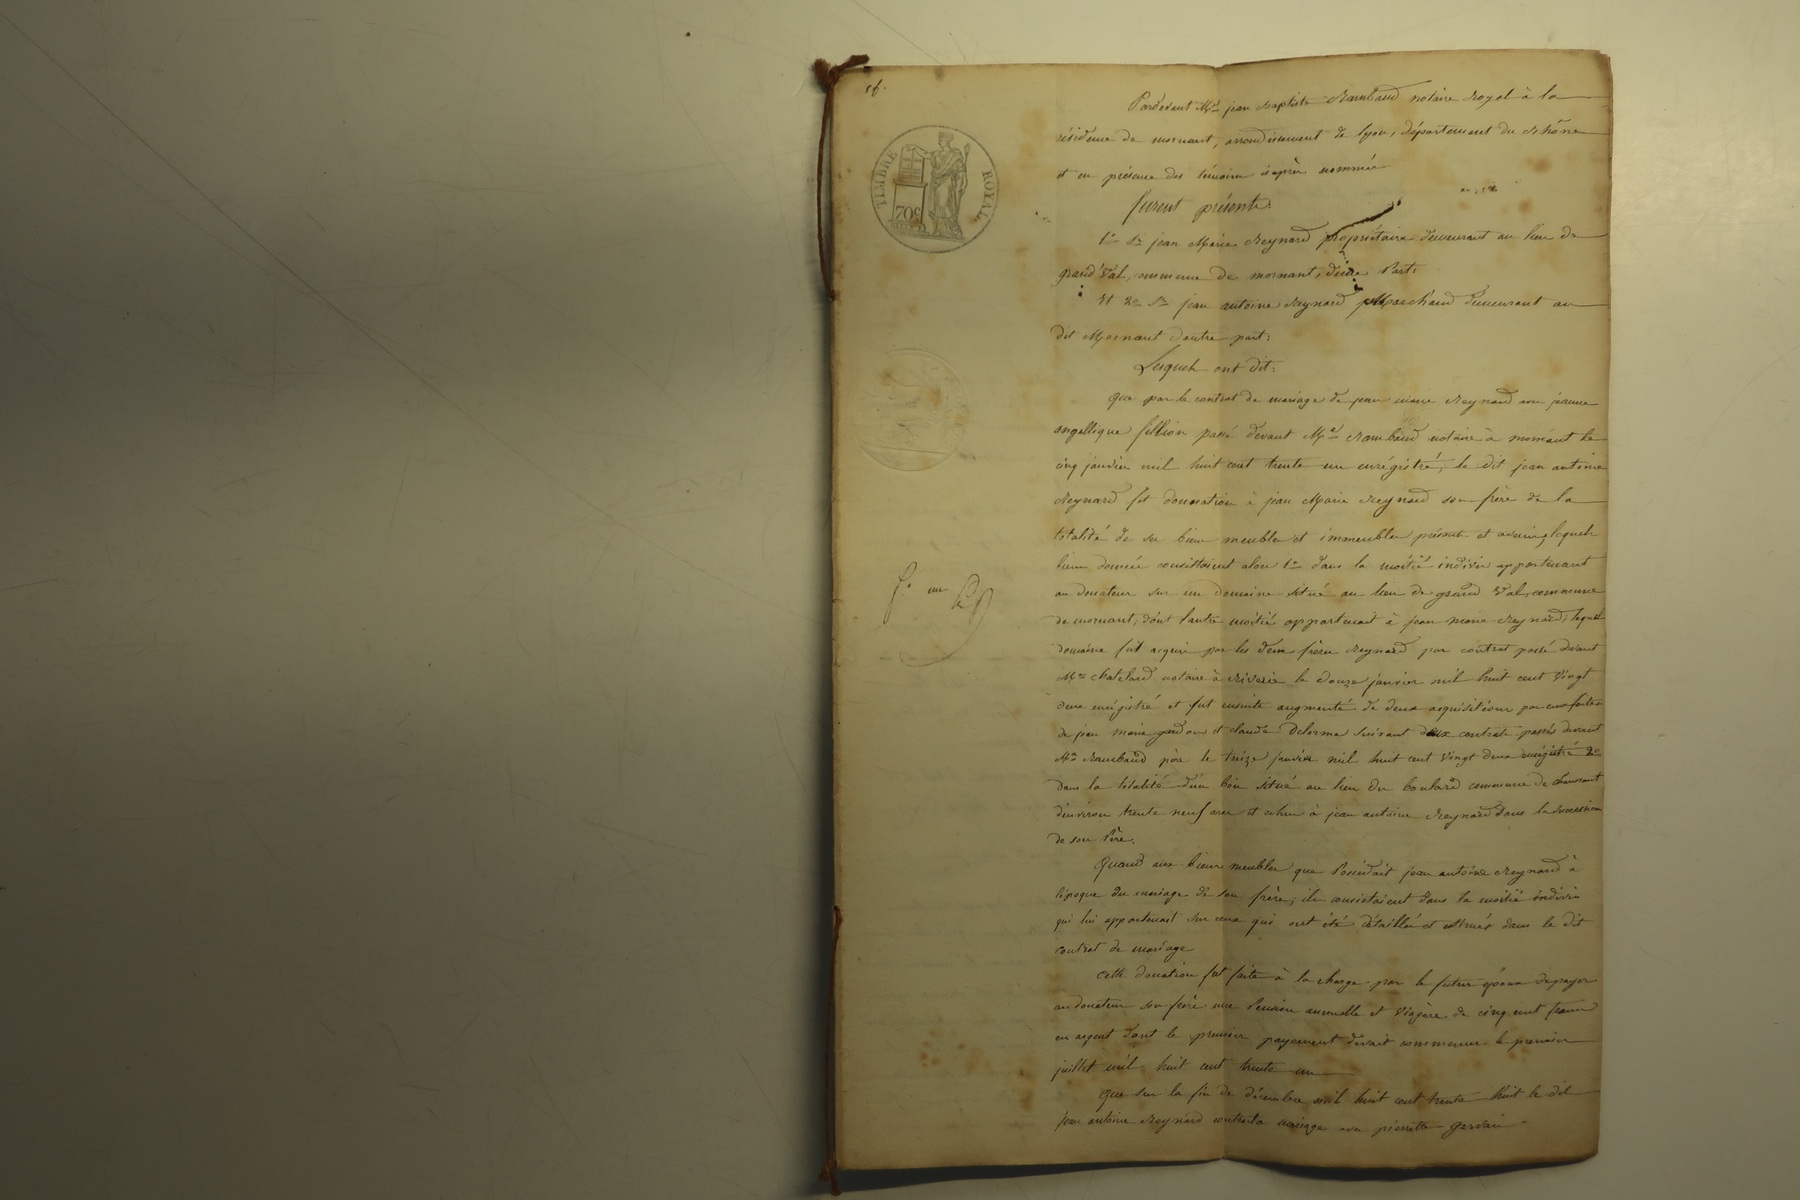 TIMBRE ROYAL
70c
Pardevant Me jean Baptiste Rambaud notaire Royal à la
résidence de mornant, arrondissement de lyon, département du Rhône
et en présence des témoins ciaprès nommés
furent présents
1° Sr jean Marie Reynard propriétaire demeurant au lieu de
grand'Val, commune de mornant, d'une Part;
Et 2° Sr jean antoine Reynard Marchand demeurant au
dit Mornant d'autre part;
Lesquels ont dit:
Que par le contrat de mariage de jean marie Reynard avec jeanne
angellique fillion passé devant Me Rambaud notaire à mornant le
cinq janvier mil huit cent trente un enrégistré, le dit jean antoine
Reynard fit donnation à jean Marie Reynard son frère de la
totalité de ses biens meubles et immeubles présents et avenir, lequels
biens donnés consistaient alors 1° dans la moitié indivis appartenant
au donateur sur un domaine situé au lieu de grand Val, commune
de mornant, dont l'autre moitié appartenait à jean marie Reynard, lequel
domaine fut acquis par les deux frères Reynard par contrat passé devant
Me Chatelard notaire à Riverie le douze janvier mil huit cent vingt
deux enrégistré et fut ensuite augmenté de deux acquisitions par eux faites
de jean marie et claude Delorme suivant deux contrats passés devant
Me Rambaud père le treize janvier mil huit cent vingt deux enrégistré 2°
dans la totalité d'un bois situé au lieu du boulard commune de chaussant
d'environ trente neuf ares et échu à jean antoine Reynard dans la succession
de son Père.
Quand aux biens meubles que Possédait jean antoine Reynard à
l'époque du mariage de son frère, ils consistaient dans la moitié indivis
qui lui appartenait sur ceux qui ont été détaillés et estimés dans le dit
contrat de mariage
Cette donation fut faite à la charge par le futur époux de payer
au donateur son frère une Pension annuelle et Viagère de cinq cent francs
en argent dont le premier payement devait commencer le premier
juillet mil huit cent trente un
Que sur la fin de décembre mil huit cent trente huit le dit
jean antoine Reynard contracta mariage avec pierrette gervais